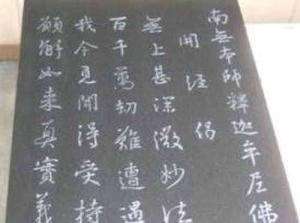 南無本師釋迦牟尼佛
開經偈
無上甚深微妙法
百千萬劫難遭遇
我今見聞得受持
願解如来真實義